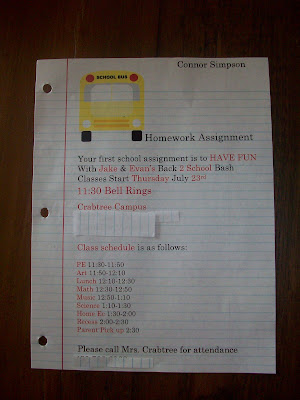 Connor Simpson
SCHOOL BUS
Homework Assignment
Your first school assignment is to HAVE FUN
With Jake & Evan's Back 2 School Bash
Classes Start Thursday July 23rd
11:30 Bell Rings
Crabtree Campus
Class schedule is as follows:
PE 11:30-11:50
Art 11:50-12:10
Lunch 12:10-12:30
Math 12:30-12:50
Music 12:50-1:10
Science 1:10-1:30
Home Ec 1:30-2:00
Recess 2:00-2:30
Parent Pick up 2:30
Please call Mrs. Crabtree for attendance